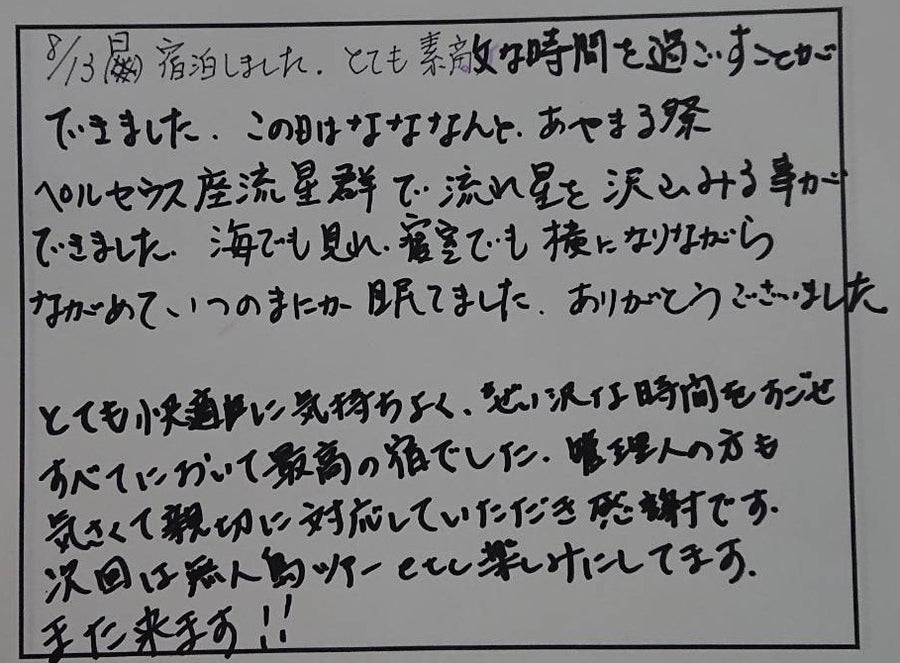 8/13(日) 宿泊しました. とても素敵な時間を過ごすことが
できました. この日はなななんと. あやまる祭
ペルセウス座流星群で流れ星を沢山みる事が
できました. 海でも見れ. 寝室でも横になりながら
ながめていつのまにか眠てました. ありがとうございました
とても快適に気持ちよく、ぜい沢な時間をすごせ
すべてにおいて最高の宿でした. 管理人の方も
気さくで親切に対応していただき感謝です.
次回は無人島ツアーetc楽しみにしてます.
また来ます!!